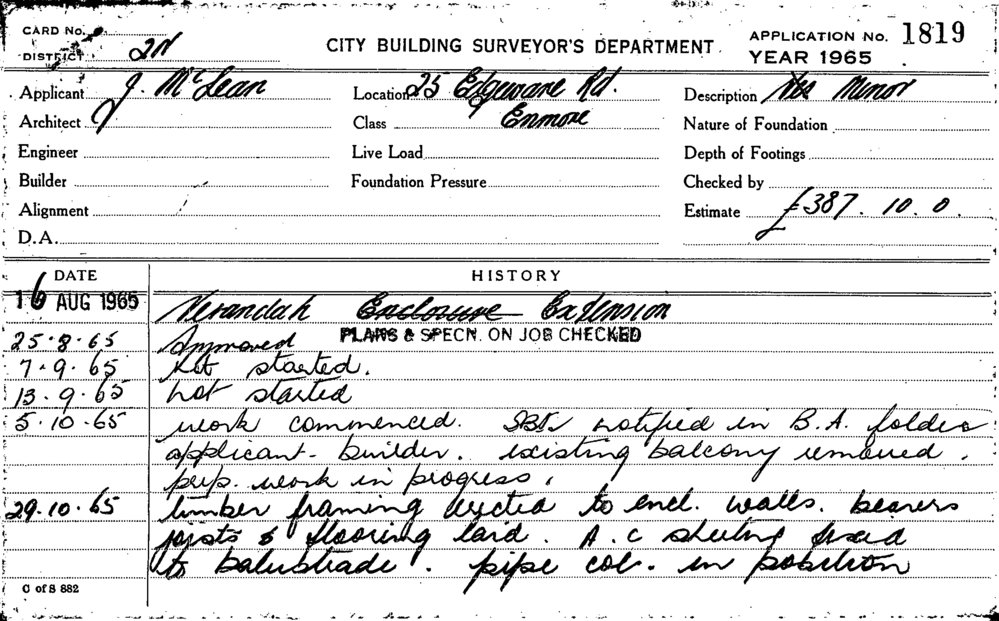 CARD No.
DISTRICT 2N
CITY BUILDING SURVEYOR'S DEPARTMENT
APPLICATION No. 1819
YEAR 1965
Applicant J. McLean
Location 25 Edgeware Rd.
Description Minor
Architect
Class Enmore
Nature of Foundation
Engineer
Live Load
Depth of Footings
Builder
Foundation Pressure
Checked by
Alignment
Estimate £387. 10. 0.
D.A.
DATE
HISTORY
16 AUG 1965 Verandah Enclosure Extension
25.8.65 Approved PLANS & SPECN. ON JOB CHECKED
7.9.65 Not started.
13.9.65 Not started
5.10.65 work commenced. notified in B.A. folder
applicant - builder. existing balcony removed.
prep. work in progress.
29.10.65 timber framing erected to encl. walls. bearers
joists & flooring laid. A.C sheeting fixed
to balustrade. pipe col. in position
C of S 882